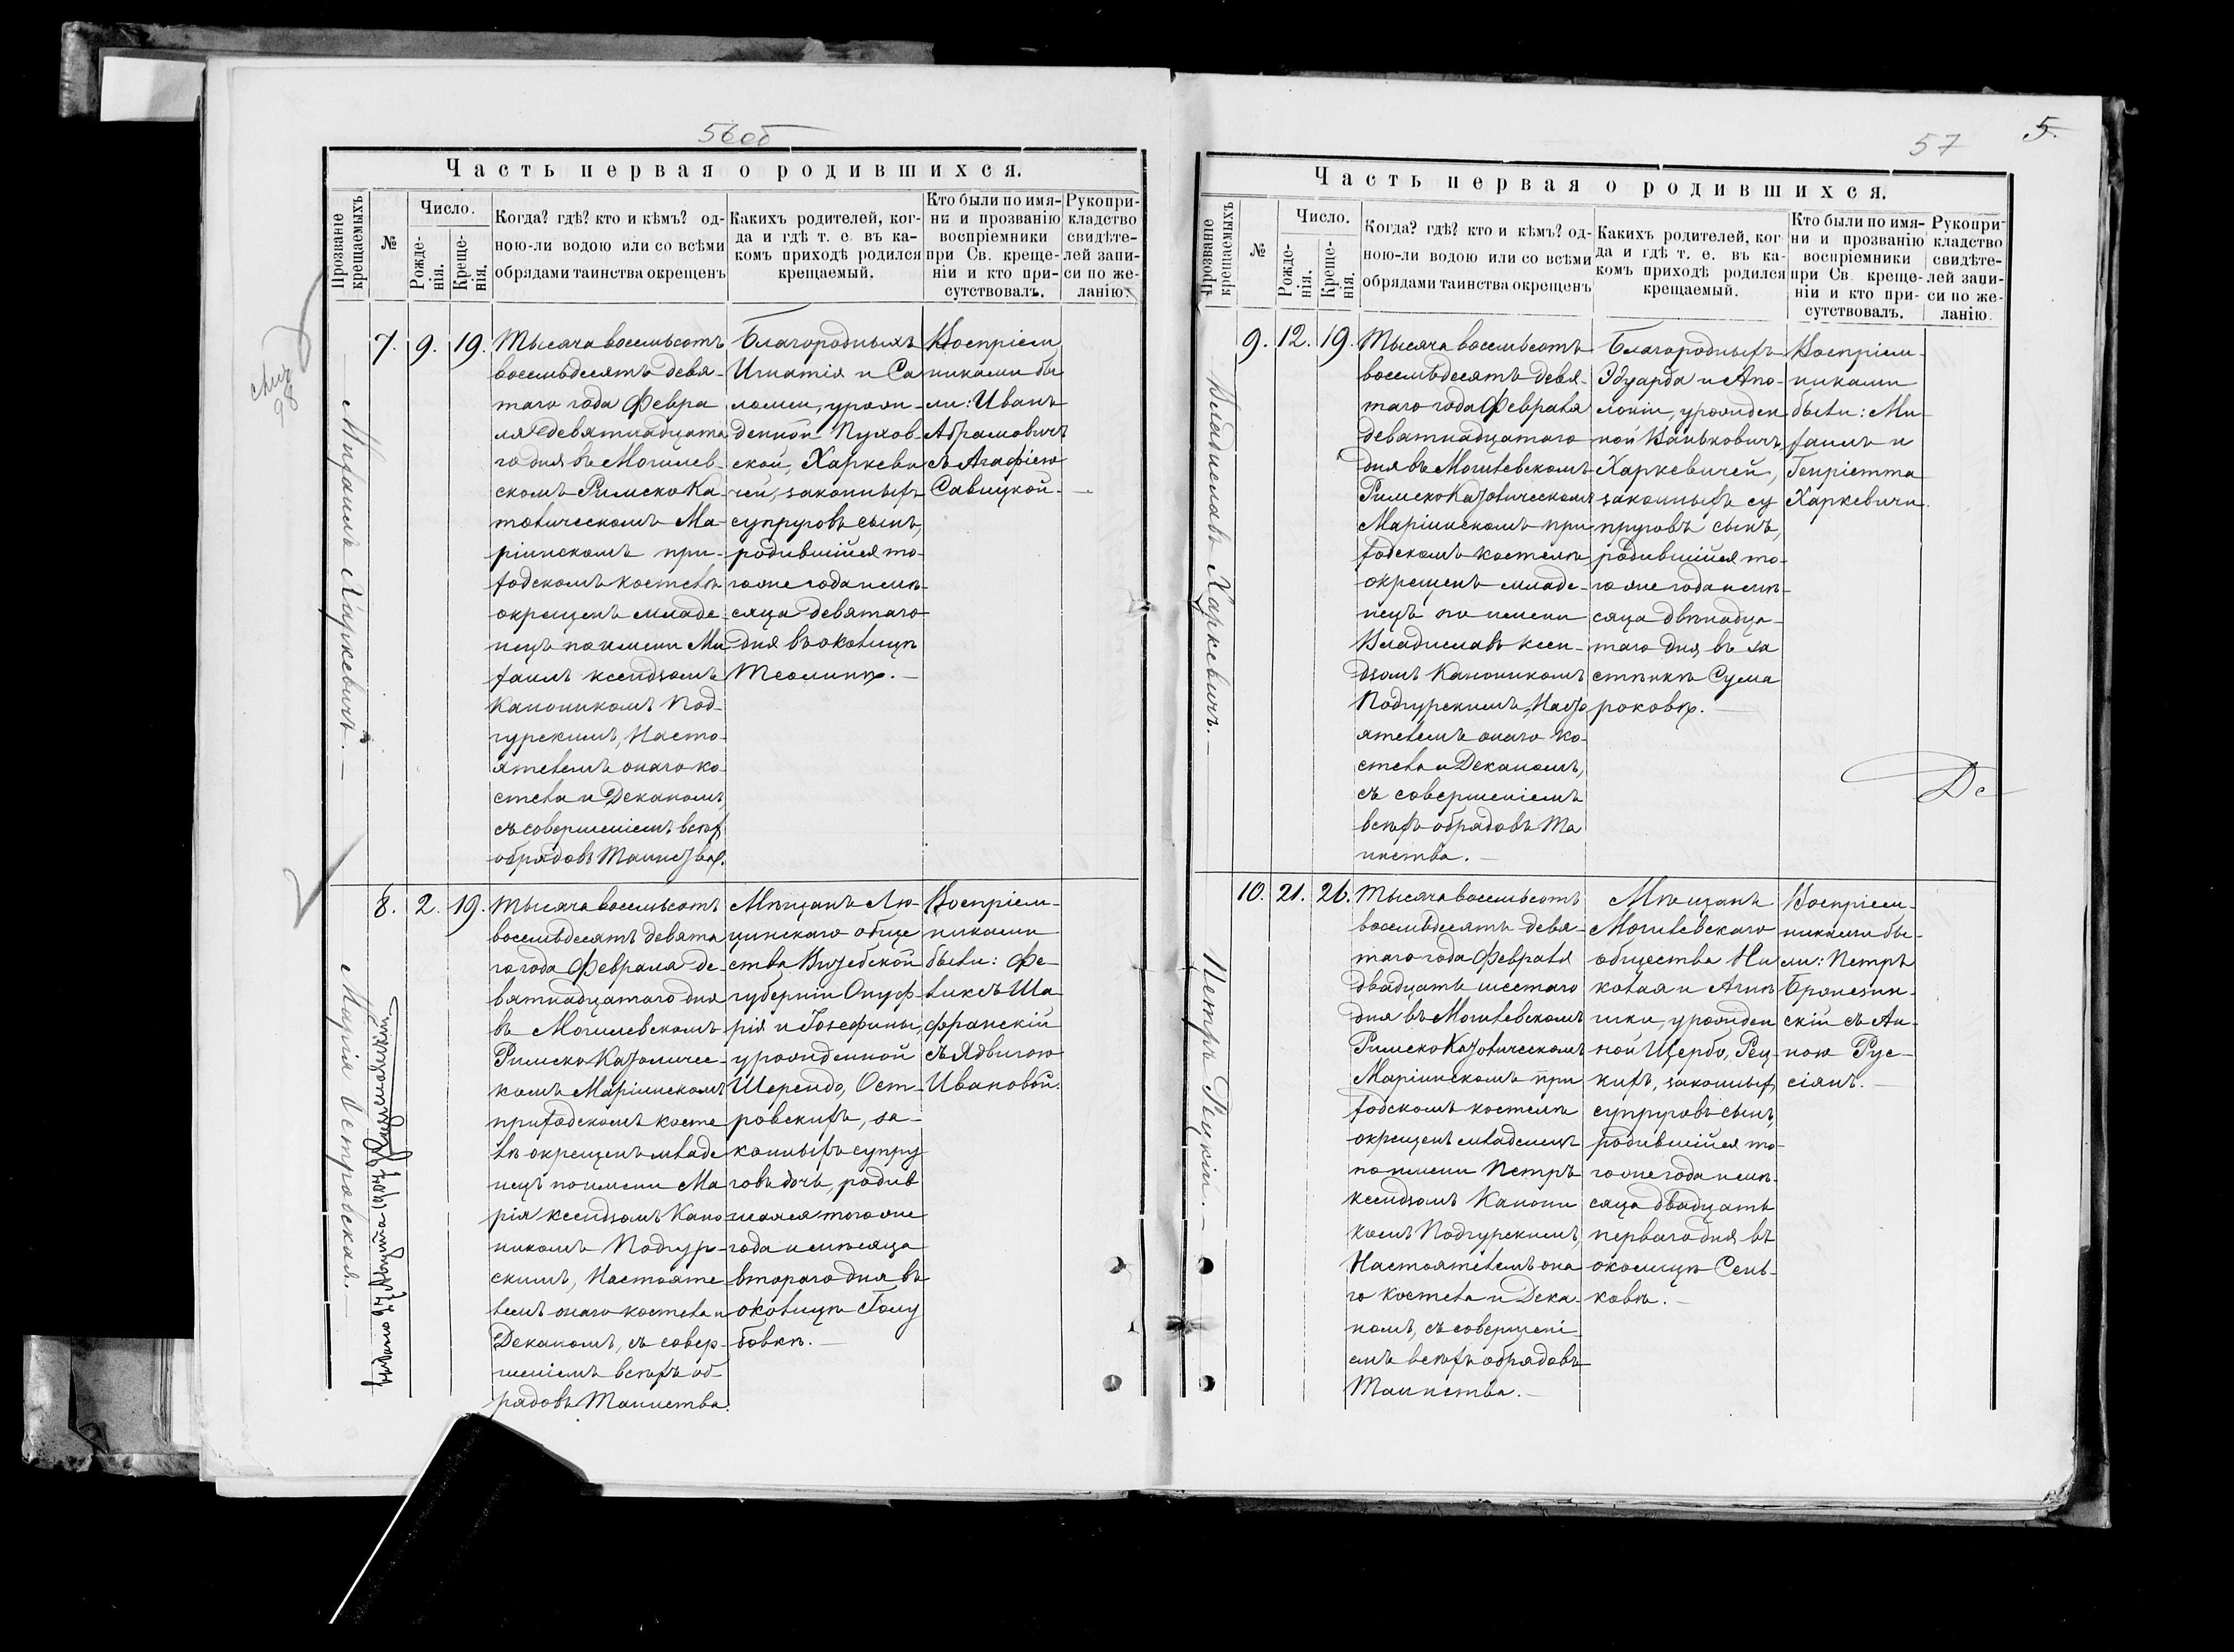 56об
Часть первая о родившихся.
Прозваніе крещаемыхъ
№
Число.
Рожде-
нія.
Креще-
нія.
Когда? гдѣ? кто и кѣмъ? од-
ною-ли водою или со всѣми
обрядами таинства окрещенъ
Какихъ родителей, ког-
да и гдѣ т. е. въ ка-
комъ приходѣ родился
крещаемый.
Кто были по имя-
ни и прозванію
воспріемники
при Св. креще-
ніи и кто при-
сутствовалъ.
Рукопри-
кладство
свидѣте-
лей запи-
си по же-
ланію.
98
Михаилъ Харкевичъ.—
7. 9. 19.
Тысяча восемьсотъ
восемьдесятъ девя-
таго года Февра
ля девятнадцата
го дня въ Могилев-
скомъ Римско Ка-
толическомъ Ма-
ріинскомъ при-
ходскомъ костелѣ
окрещенъ младе
нецъ по имени Ми
хаилъ ксендзомъ
Каноникомъ Под-
гурскимъ, Насто-
ятелемъ онаго ко-
стела и Деканомъ,
съ совершеніемъ всѣхъ
обрядовъ Таинства.
Благородныхъ
Игнатія и Са
ломеи, урож-
денной Пухов-
ской, Харкеви
чей, законныхъ
супруговъ сынъ,
родившійся то-
го же года и мѣ-
сяца девятаго
дня въ околицѣ
Тесолинѣ.—
Воспріем
никами бы
ли: Иванъ
Абрамовичъ
съ Агафіею
Савицкой.
Марія Островская.—
выдано 27 Августа 1907
8. 2. 19.
Тысяча восемьсотъ
восемьдесятъ девята
го года Февраля де-
вятнадцатаго дня
въ Могилевскомъ
Римско Католичес-
комъ Маріинскомъ
приходскомъ косте
лѣ окрещенъ младе
нецъ по имени Ма
рія ксендзомъ Кано
никомъ Подгур-
скимъ, Настояте-
лемъ онаго костела и
Деканомъ, съ совер-
шеніемъ всѣхъ об-
рядовъ Таинства.
Мѣщанъ Лю-
цинскаго обще
ства Витебской
губерніи Онуф-
рія и Іозефины,
урожденной
Шерендо, Ост-
ровскихъ, за-
конныхъ супру
говъ дочь, родив
шаяся того же
года и мѣсяца
втораго дня въ
околицѣ Голу
бовкѣ.—
Воспріем-
никами
были: Фе-
ликсъ Ша-
франскій
съ Ядвигою
Ивановой.
57
5.
Часть первая о родившихся.
Прозваніе крещаемыхъ
№
Число.
Рожде-
нія.
Креще-
нія.
Когда? гдѣ? кто и кѣмъ? од-
ною-ли водою или со всѣми
обрядами таинства окрещенъ
Какихъ родителей, ког
да и гдѣ т. е. въ ка-
комъ приходѣ родился
крещаемый.
Кто были по имя-
ни и прозванію
воспріемники
при Св. креще-
ніи и кто при-
сутствовалъ.
Рукопри-
кладство
свидѣте-
лей запи-
си по же-
ланію.
Владиславъ Харкевичъ.—
9. 12. 19.
Тысяча восемьсотъ
восемьдесятъ девя-
таго года Февраля
девятнадцатаго
дня въ Могилевскомъ
Римско Католическомъ
Маріинскомъ при
ходскомъ костелѣ
окрещенъ младе-
нецъ по имени
Владиславъ ксен-
дзомъ Каноникомъ
Подгурскимъ, Насто
ятелемъ онаго ко-
стела и Деканомъ,
съ совершеніемъ
всѣхъ обрядовъ Та
инства.—
Благородныхъ
Эдуарда и Апо-
лоніи, урожден
ной Ваньковичъ,
Харкевичей,
законныхъ су
пруговъ сынъ,
родившійся то-
го же года и мѣ-
сяца двѣнадца-
таго дня, въ за
стѣнкѣ Сума
роковѣ.—
Воспріем-
никами
были: Ми-
хаилъ и
Генріетта
Харкевичи.
Петръ Рецкій.—
10. 21. 26.
Тысяча восемьсотъ
восемьдесятъ девя-
таго года Февраля
двадцать шестаго
дня въ Могилевскомъ
Римско Католическомъ
Маріинскомъ при
ходскомъ костелѣ
окрещенъ младенецъ
по имени Петръ
ксендзомъ Канони
комъ Подгурскимъ,
Настоятелемъ она
го костела и Дека-
номъ, съ совершені-
емъ всѣхъ обрядовъ
Таинства.—
Мѣщанъ
Могилевскаго
общества Ни
колая и Агнѣ
шки, урожден
ной Щербо, Рец-
кихъ, законныхъ
супруговъ сынъ,
родившійся то-
го же года и мѣ-
сяца двадцать
перваго дня въ
околицѣ Сень-
ковѣ.—
Воспріем-
никами бы-
ли: Петръ
Бронезин-
скій съ Ан-
ною Рус-
сіянъ.—
Де